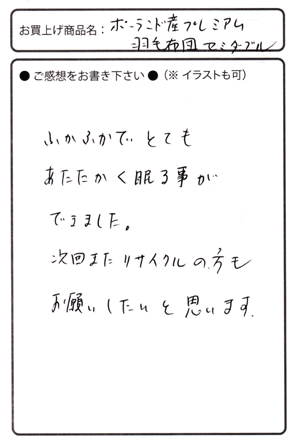 お買上げ商品名： ポーランド産プレミアム
羽毛布団セミダブル
● ご感想をお書き下さい ● (※ イラストも可)
ふかふかで とても
あたたかく眠る事が
できました。
次回また リサイクルの方も
お願いしたいと思います.